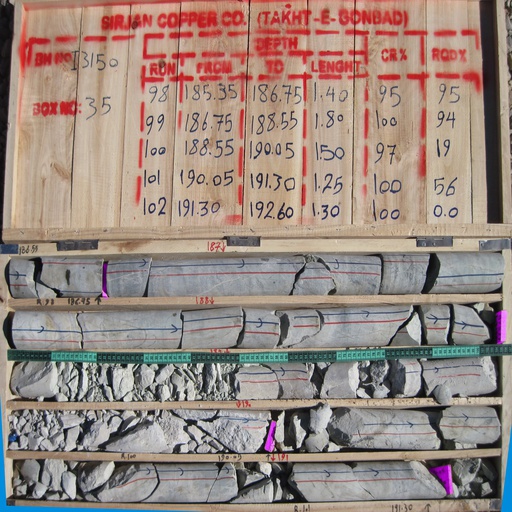 SIRJAN COPPER CO. (TAKHT-E-GONBAD)
BH NO: I3150
BOX NO: 35
DEPTH
RUN FROM TO LENGHT CR% RQD%
98 185.35 186.75 1.40 95 95
99 186.75 188.55 1.80 100 94
100 188.55 190.05 1.50 97 19
101 190.05 191.30 1.25 100 56
102 191.30 192.60 1.30 100 0.0
187
R.100 190.05 191
R.101 191.30